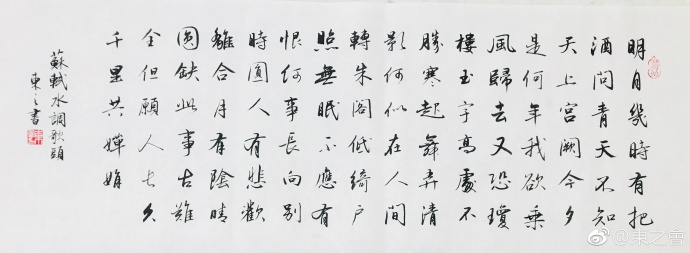 明月幾時有把
酒問青天不知
天上宮闕今夕
是何年我欲乘
風歸去又恐瓊
樓玉宇高處不
勝寒起舞弄清
影何似在人間
轉朱閣低綺戶
照無眠不應有
恨何事長向別
時圓人有悲歡
離合月有陰晴
圓缺此事古難
全但願人長久
千里共嬋娟
蘇軾水調歌頭
東之書
@東之會